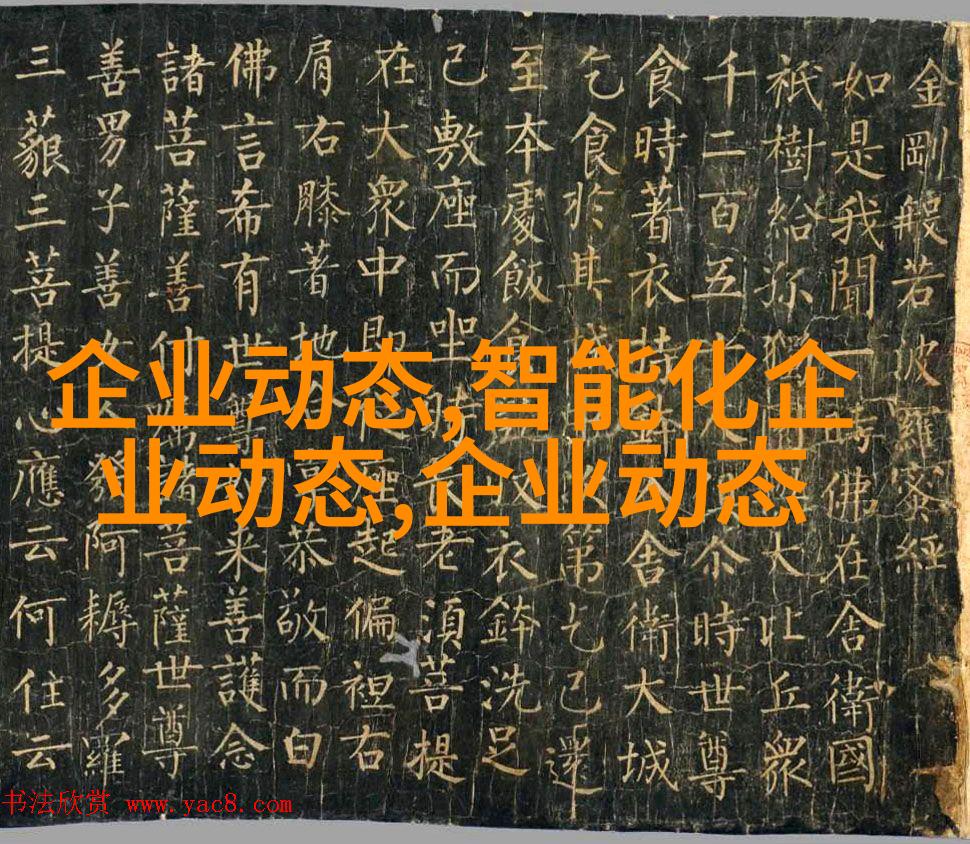 金剛般若波羅蜜經
如是我聞一時佛在舍衛國
祇樹給孤獨園大比丘眾
千二百五十人尒時世尊
食時著衣持鉢入舍衛大城
乞食於其城中第乞已還
至本處飯食訖收衣鉢洗足
已敷座而坐時長老須菩提
在大眾中即從座起偏袒右
肩右膝著地合掌恭敬而白
佛言希有世尊如来善護念
諸菩薩善付囑諸菩薩世尊
善男子善女人發阿耨多羅
三藐三菩提心應云何住云
企业动态,智能化企
业动态,企业动态
书法欣赏 www.yac8.com